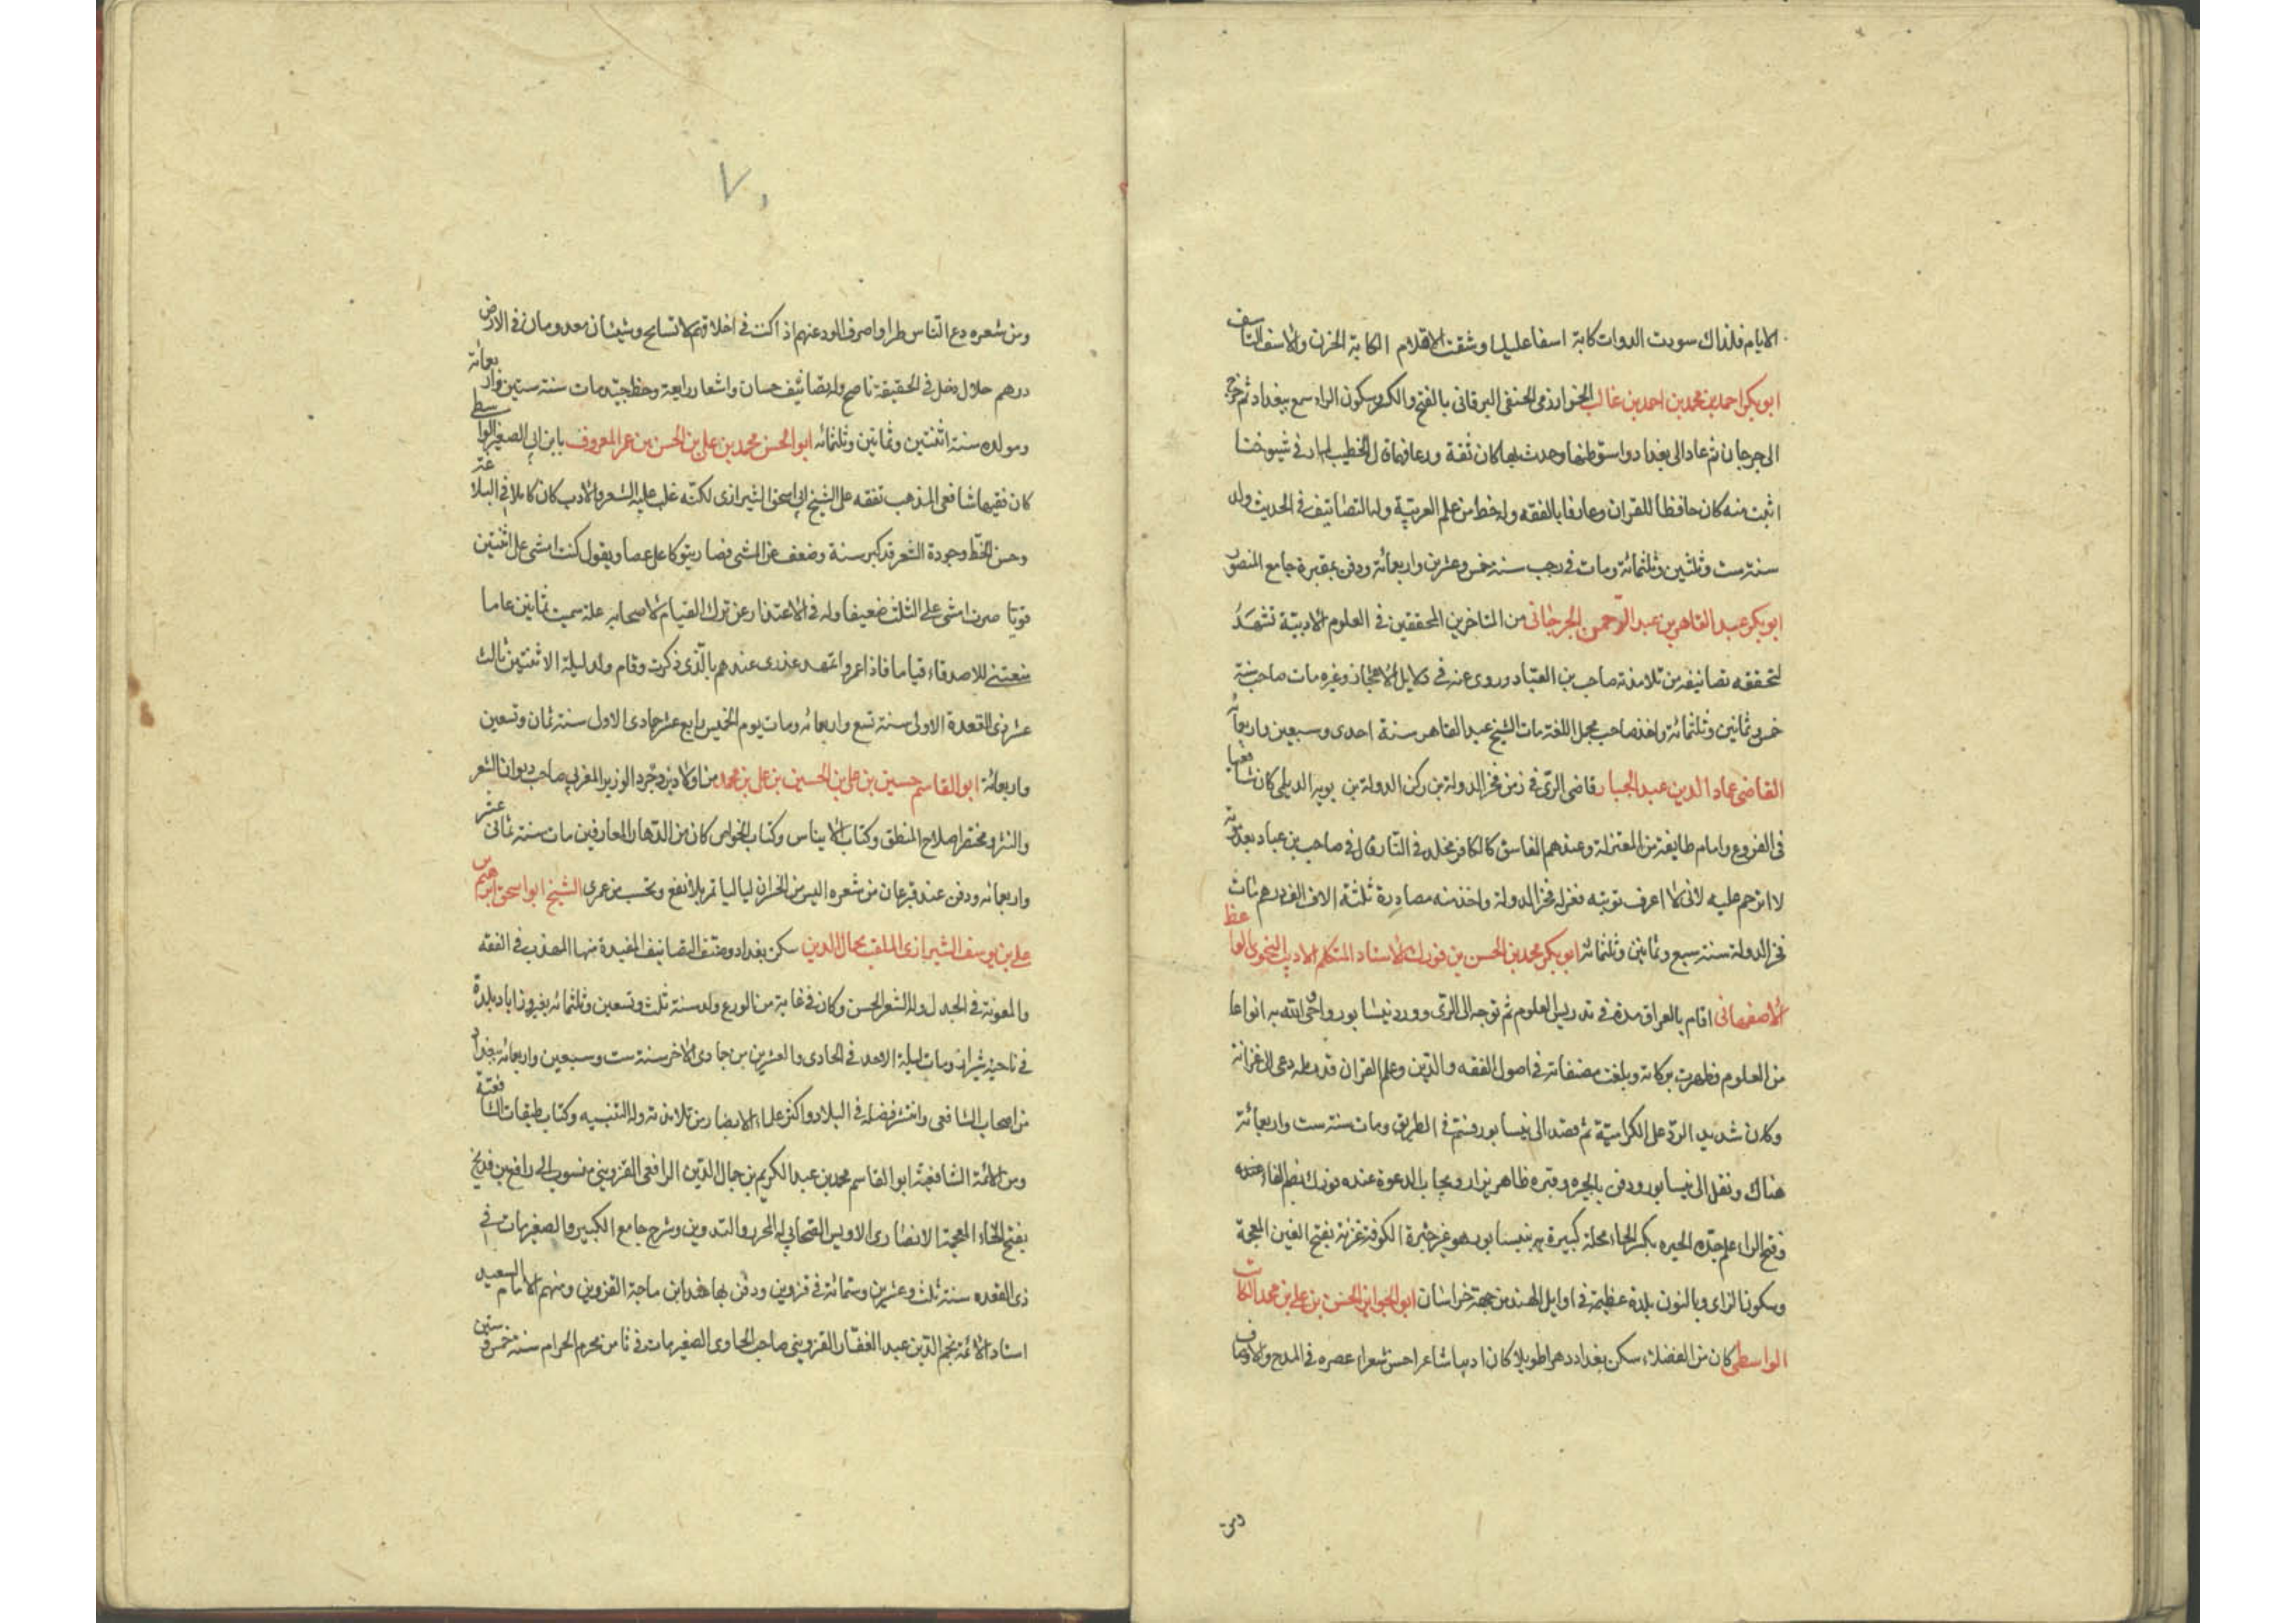 الايام فلذاك سودت الدوات كابة اسفا عليك وشقت الاقلام الكابة الحزن والاسف التاسف
ابو بكر احمد بن محمد بن احمد بن غالب الخوارزمى الحنفى البرقانى بالفتح والكسر وسكون الراء سمع ببغداد ثم خرج
الى جرجان ثم عاد الى بغداد واستوطنها وحدث بها كان ثقة ورعا فهما قال الخطيب لم ار فى شيوخنا
اثبت منه كان حافظا للقران وعارفا بالفقه وله حظ من علم العربية وله التصانيف فى الحديث ولد
سنة ست وثلثين وثلثمائة ومات فى رجب سنة خمس وعشرين واربعمائة ودفن بمقبرة جامع المنصور
ابو بكر عبد القاهر بن عبد الرحمن الجرجانى من المتاخرين المحققين فى العلوم الادبية تشهد
لتحققه تصانيفه من تلامذة صاحب بن العباد وروى عنه فى دلايل الاعجاز وغيره مات صاحب سنة
خمس وثمانين وثلثمائة واخذ صاحب مجمل اللغة مات الشيخ عبد القاهر سنة احدى وسبعين واربعمائة
القاضى عماد الدين عبد الجبار قاضى الرى فى زمن فخر الدولة بن ركن الدولة بن بويه الديلمى كان شافعيا
فى الفروع وامام طايفة من المعتزلة وعندهم الفاسق كالكافر مخلد فى النار قال فى صاحب بن عباد بعد موته
لا اترحم عليه لانى لا اعرف توبته فعزله فخر الدولة واخذ منه مصادرة ثلثة الاف الف درهم مات
فخر الدولة سنة سبع وثمانين وثلثمائة ابو بكر محمد بن الحسن بن فورك الاستاد المتكلم الاديب النحوى الواعظ
الاصفهانى اقام بالعراق مدة فى تدريس العلوم ثم توجه الى الرى وورد نيشابور واحى الله به انواعا
من العلوم فظهرت بركاته وبلغت مصنفاته فى اصول الفقه والدين وعلم القران قدر مايه دعى الى غزانة
وكان شديد الرد على الكرامية ثم قصد الى نيسابور فسم فى الطريق ومات سنة ست واربعمائة
هناك ونقل الى نيسابور ودفن بالحيره وقبره ظاهر يزار ويجاب الدعوة عنده فورك بضم الفاء
وفتح الراء علم جده الحيره بكسر الحاء محلة كبيرة بنيسابور وهو غير حيرة الكوفة غزنة بفتح الغين المعجمة
وسكون الزاى وبالنون بلدة عظيمة فى اوايل الهند من جهة خراسان ابو الجوايز الحسن بن على بن محمد الكاتب
الواسطى كان من الفضلاء سكن بغداد دهرا طويلا كان اديبا شاعرا حسن شعراء عصره فى المدح والاوصاف
ومن
٧٠
ومن شعره دع الناس طرا واصرف الود عنهم اذا كنت فى اخلاقهم لا تسامح وشيئان معدومان فى الارض
درهم حلال وخل فى الحقيقة ناصح وله تصانيف حسان واشعار رايعة وخط جيد ومات سنة ستين واربعمائة
ومولده سنة اثنتين وثمانين وثلثمائه ابو الحسن محمد بن على بن الحسن بن عمر المعروف بابن ابى الصقر الواسطى
كان فقيها شافعى المذهب تفقه على الشيخ ابى اسحق الشيرازى لكنه غلب عليه الشعر والادب كان كاملا فى البلاغة
وحسن الخط وجودة الشعر قد كبر سنة وضعف عن المشى فصار يتوكا على عصا ويقول كنت امشى على اثنتين
قويا صرت امشى على الثلث ضعيفا وله فى الاعتذار عن ترك القيام لاصحابه علة سميت ثمانين عاما
منعتنى للاصدقاء قياما فاذا عمروا تمهد عذرى عندهم بالذى ذكرت وقام ولد ليلة الاثنين ثالث
عشر ذى القعدة الاولى سنة تسع واربعمائه ومات يوم الخميس رابع عشر جمادى الاول سنة ثمان وتسعين
واربعمائة ابو القاسم حسين بن على بن الحسين بن على بن محمد من اولاد يزدجرد الوزير المغربى صاحب ديوان الشعر
والنثر ومختصر اصلاح المنطق وكتاب الايناس وكتاب الخواص كان من الدهاة العارفين مات سنة ثمانى عشر
واربعمائه ودفن عند قبر من شعره اليس من الخسران ليالياتمر بلا نفع وتحسب من عمرى الشيخ ابو اسحق ابرهيم بن
على بن يوسف الشيرازى الملقب بجمال الدين سكن بغداد وصنف التصانيف المفيدة منها المهذب فى الفقه
والمعونة فى الجدل وله الشعر الحسن وكان فى غاية من الورع ولد سنة ثلث وتسعين وثلثمائه بفيروزاباد بلدة
فى ناحية شيراز ومات ليلة الاحد فى الحادى والعشرين من جمادى الاخر سنة ست وسبعين واربعمائه ببغداد
من اصحاب الشافعى وانتشر فضله فى البلاد واكثر علماء الامصار من تلامذته وله التنبيه وكتاب طبقات الشافعية
ومن الائمة الشافعية ابو القاسم محمد بن عبد الكريم بن جمال الدين الرافعى القزوينى منسوب الى رافع بن خديج
بفتح الخاء المعجمة الانصارى الاويسى الصحابى له المحرر والتدوين وشرح جامع الكبير والصغير مات فى
ذى القعده سنة ثلث وعشرين وستمائة فى قزوين ودفن بها عند ابن ماجة القزوين ومنهم الامام السعيد
استاد الائمة نجم الدين عبد الغفار القزوينى صاحب الحاوى الصغير مات فى ثامن محرم الحرام سنة خمس وستين